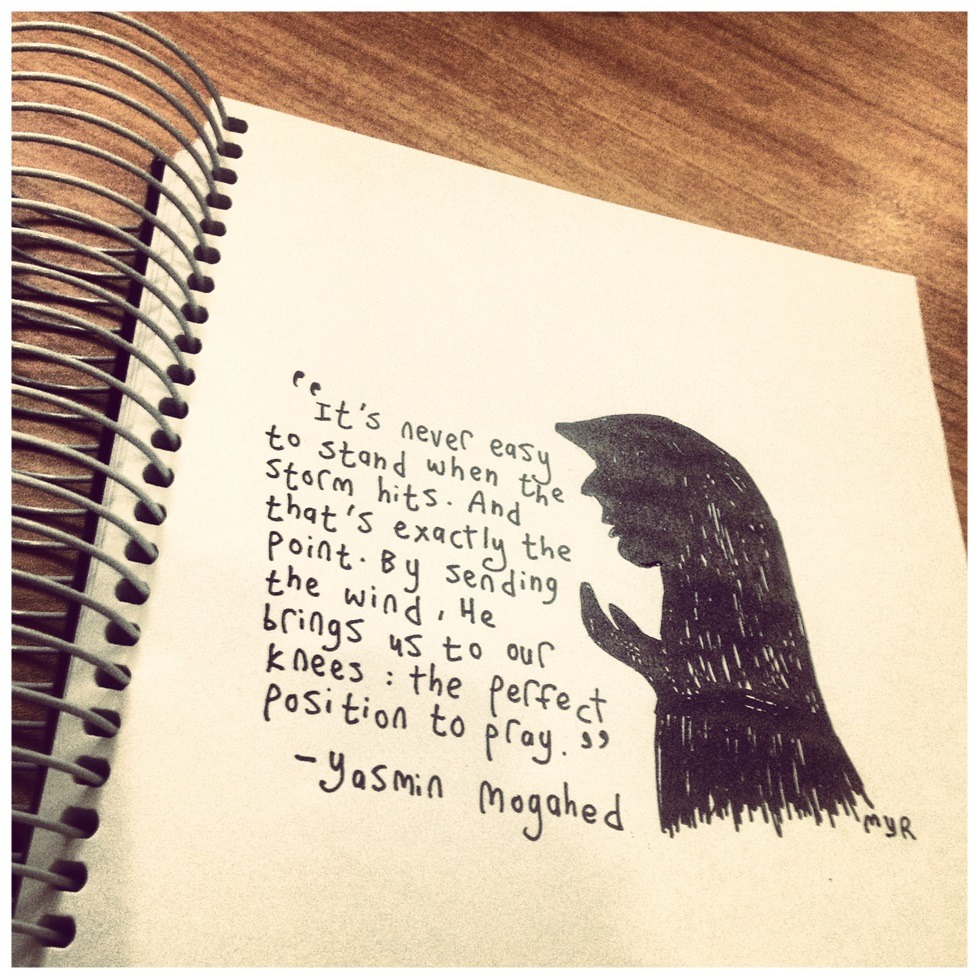 “It's never easy
to stand when the
storm hits. And
that's exactly the
point. By sending
the wind, He
brings us to our
knees : the perfect
position to pray.”
- Yasmin Mogahed
MYR